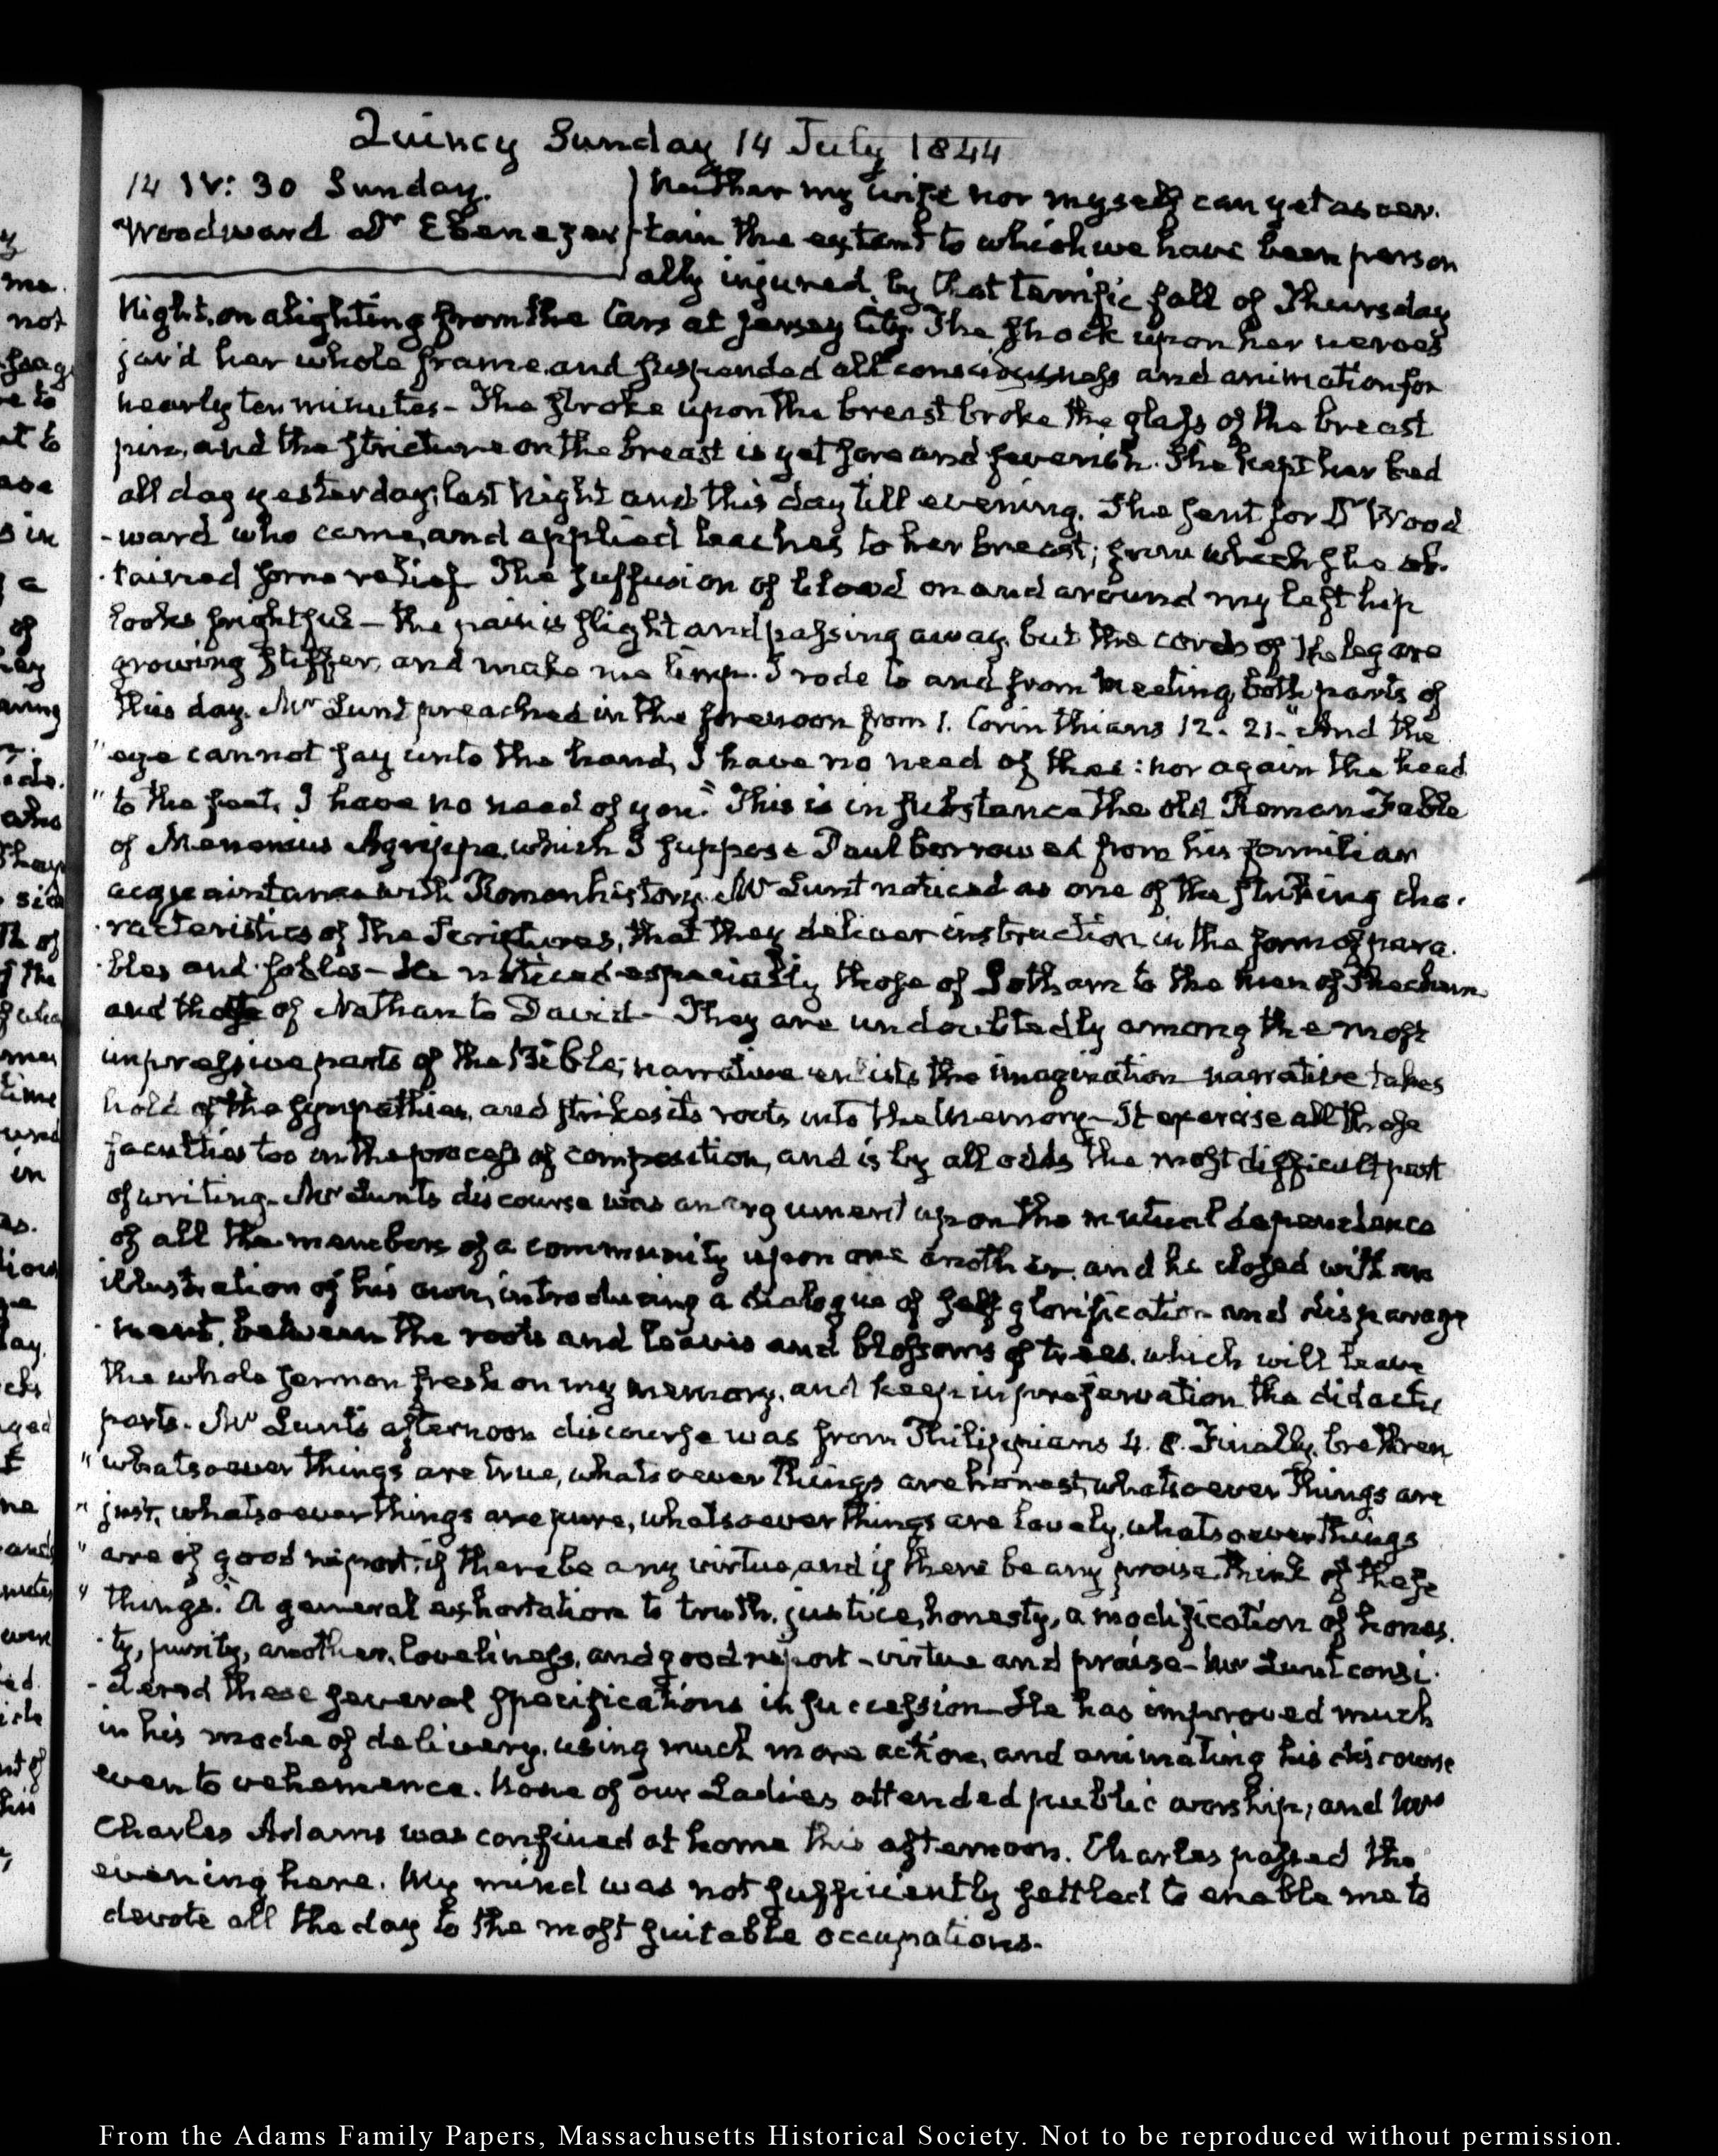 Quincy Sunday 14 July 1844
14 IV: 30 Sunday.
Woodward Dr Ebenezer
Neither my wife nor myself can yet ascer.
-tain the extent to which we have been person
ally injured, by that terrific fall of Thursday
Night, on alighting from the Cars at Jersey City. The shock upon her nerves
jar'd her whole frame, and suspended all consciousness and animation for
nearly ten minutes - The stroke upon the breast broke the glass of the breast
pin, and the stricture on the breast is yet sore and feverish. She kept her bed
all day yesterday, last Night and this day till evening. She sent for Dr Wood
-ward who came, and applied leaches to her breast; from which she ob-
-tained some relief. The suffusion of blood on and around my left hip
looks frightful - the pain is slight and passing away, but the cords of the leg are
growing stiffer, and make me limp. I rode to and from Meeting, both parts of
this day. Mr Lunt preached in the forenoon from 1. Corinthians 12. 21. "And the
"eye cannot say unto the hand, I have no need of thee: nor again the head
"to the feet, I have no need of you." This is in substance the old Roman Fable
of Menenius Agrippa, which I suppose Paul borrowed from his familiar
acquaintance with Roman history. Mr Lunt noticed as one of the striking cha-
-racteristics of the Scriptures, that they deliver instruction in the form of para-
-bles and fables - He noticed especially those of Jotham to the men of Shechem
and those of Nathan to David - They are undoubtedly among the most
impressive parts of the Bible; narrative enlists the imagination narrative takes
hold of the sympathies, and strikes its roots into the Memory - It exercise all those
faculties too in the process of composition, and is by all odds the most difficult part
of writing - Mr Lunt's discourse was an argument upon the mutual dependence
of all the members of a community upon one another, and he closed with an
illustration of his own, introducing a dialogue of self glorification and disparage
-ment, between the roots and leaves and blossoms of trees, which will leave
the whole sermon fresh on my memory, and keep in preservation the didactic
parts. Mr Lunt's afternoon discourse was from Philippians 4. 8. Finally, brethren
"whatsoever things are true, whatsoever things are honest, whatsoever things are
"just, whatsoever things are pure, whatsoever things are lovely, whatsoever things
"are of good report; if there be any virtue, and if there be any praise, think of these
"things." A general exhortation to truth, justice, honesty, a modification of hones-
-ty, purity, another, loveliness, and good report - virtue and praise - Mr Lunt consi-
-dered these several specifications in succession - He has improved much
in his mode of delivery, using much more action, and animating his discourse
even to vehemence. None of our Ladies attended public worship; and Mrs
Charles Adams was confined at home this afternoon. Charles passed the
evening here. My mind was not sufficiently settled to enable me to
devote all the day to the most suitable occupations.
From the Adams Family Papers, Massachusetts Historical Society. Not to be reproduced without permission.